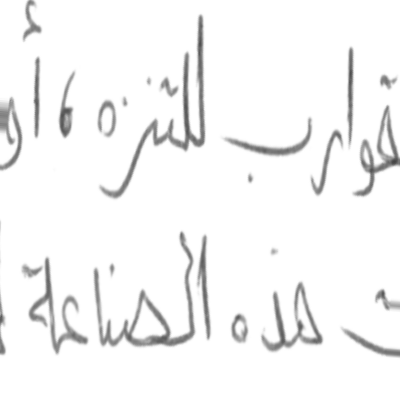 قوارب للتنزه ، أو
ت هذه الصناعة